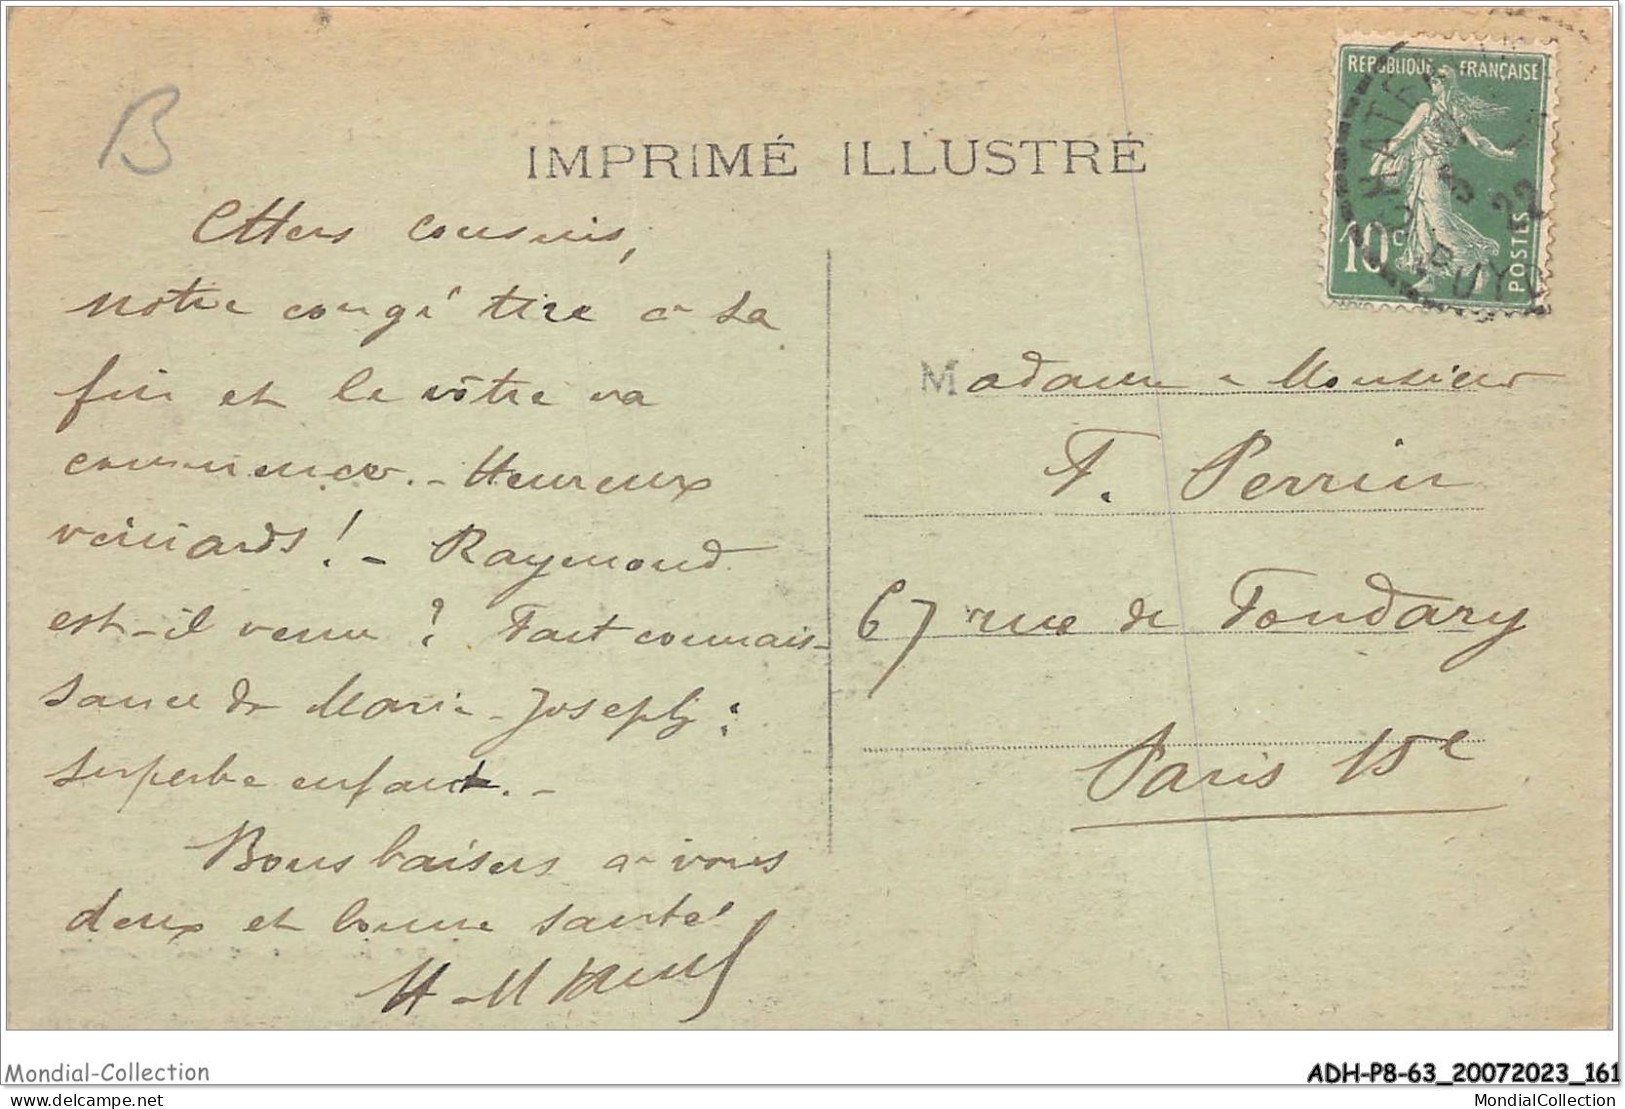 B
IMPRIMÉ ILLUSTRÉ
RÉPUBLIQUE FRANÇAISE
10c
POSTES
22
Chers cousins,
notre congé tire à sa
fin et le vôtre va
commencer. - Heureux
veinards ! - Raymond
est-il venu ? Fait connais-
sance de Marie-Joseph :
superbe enfant. -
Bons baisers à vous
deux et bonne santé
Madame & Monsieur
F. Perrin
67 rue de Fondary
Paris 15e
Mondial-Collection
ADH-P8-63_20072023_161
delcampe.net
MondialCollection